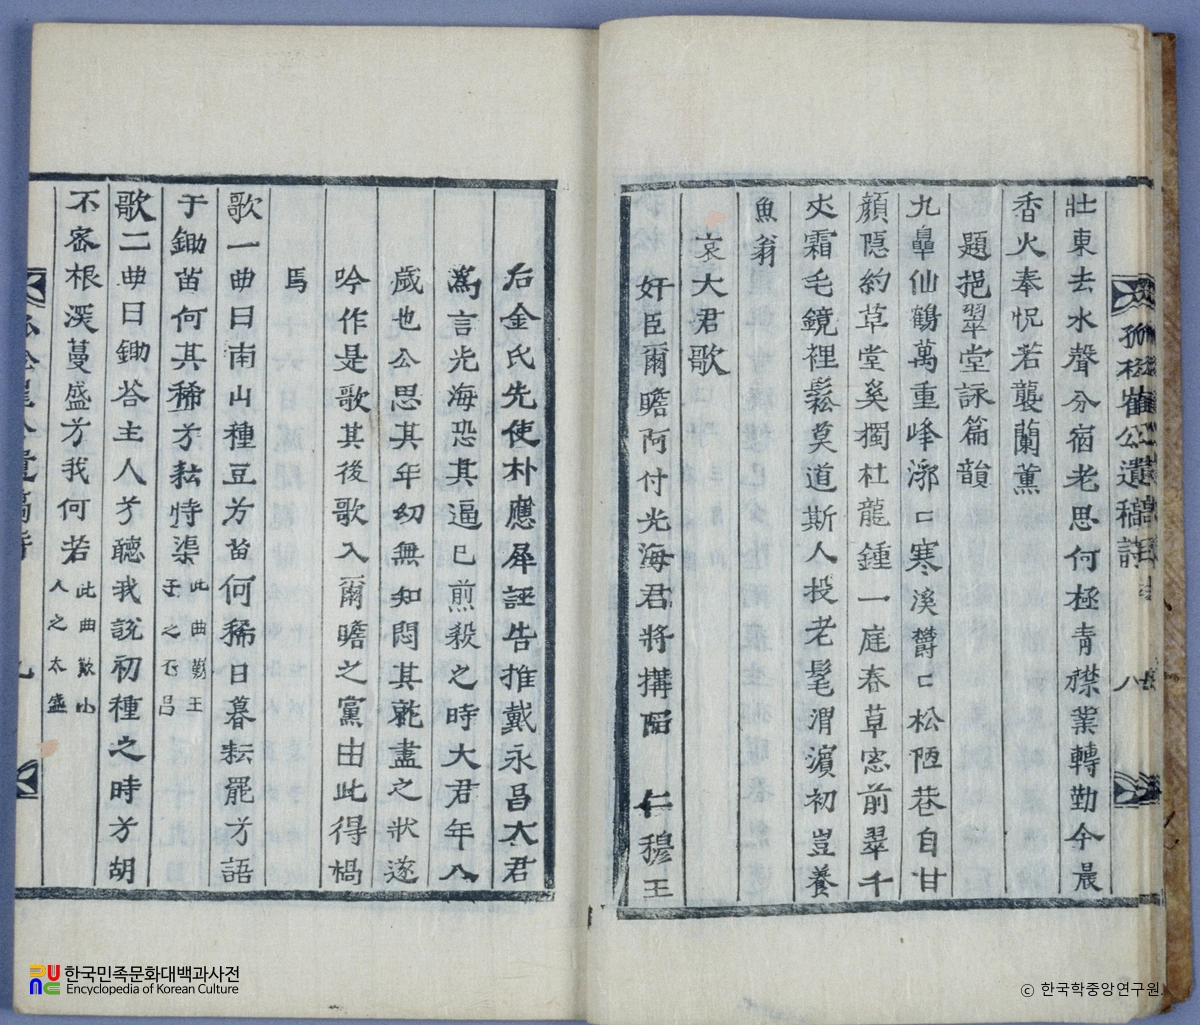 壯東去水聲分宿老思何極青襟業轉勤今晨
香火奉怳若襲蘭薰
題挹翠堂詠篇韻
九臯仙鶴萬重峰漷口寒溪欝口松陋巷自甘
顔隱約草堂奚獨杜龍鍾一庭春草窓前翠千
丈霜毛鏡裡鬆莫道斯人投老髦渭濱初豈養
魚翁
哀大君歌
奸臣爾瞻阿付光海君將搆陷 仁穆王
后金氏先使朴應犀誣告推戴永昌大君
爲言光海恐其逼已煎殺之時大君年八
歲也公思其年幼無知悶其乾盡之狀遂
吟作是歌其後歌入爾瞻之黨由此得禍
焉
歌一曲曰南山種豆兮苗何稀日暮耘罷兮語
于鋤苗何其稀兮耘恃渠 此曲勸王于之石昌
歌二曲曰鋤答主人兮聽我說初種之時兮胡
不密根深蔓盛兮我何若 此曲歎小人之太盛
孤松崔公遺稿
八
九
한국민족문화대백과사전
Encyclopedia of Korean Culture
ⓒ 한국학중앙연구원